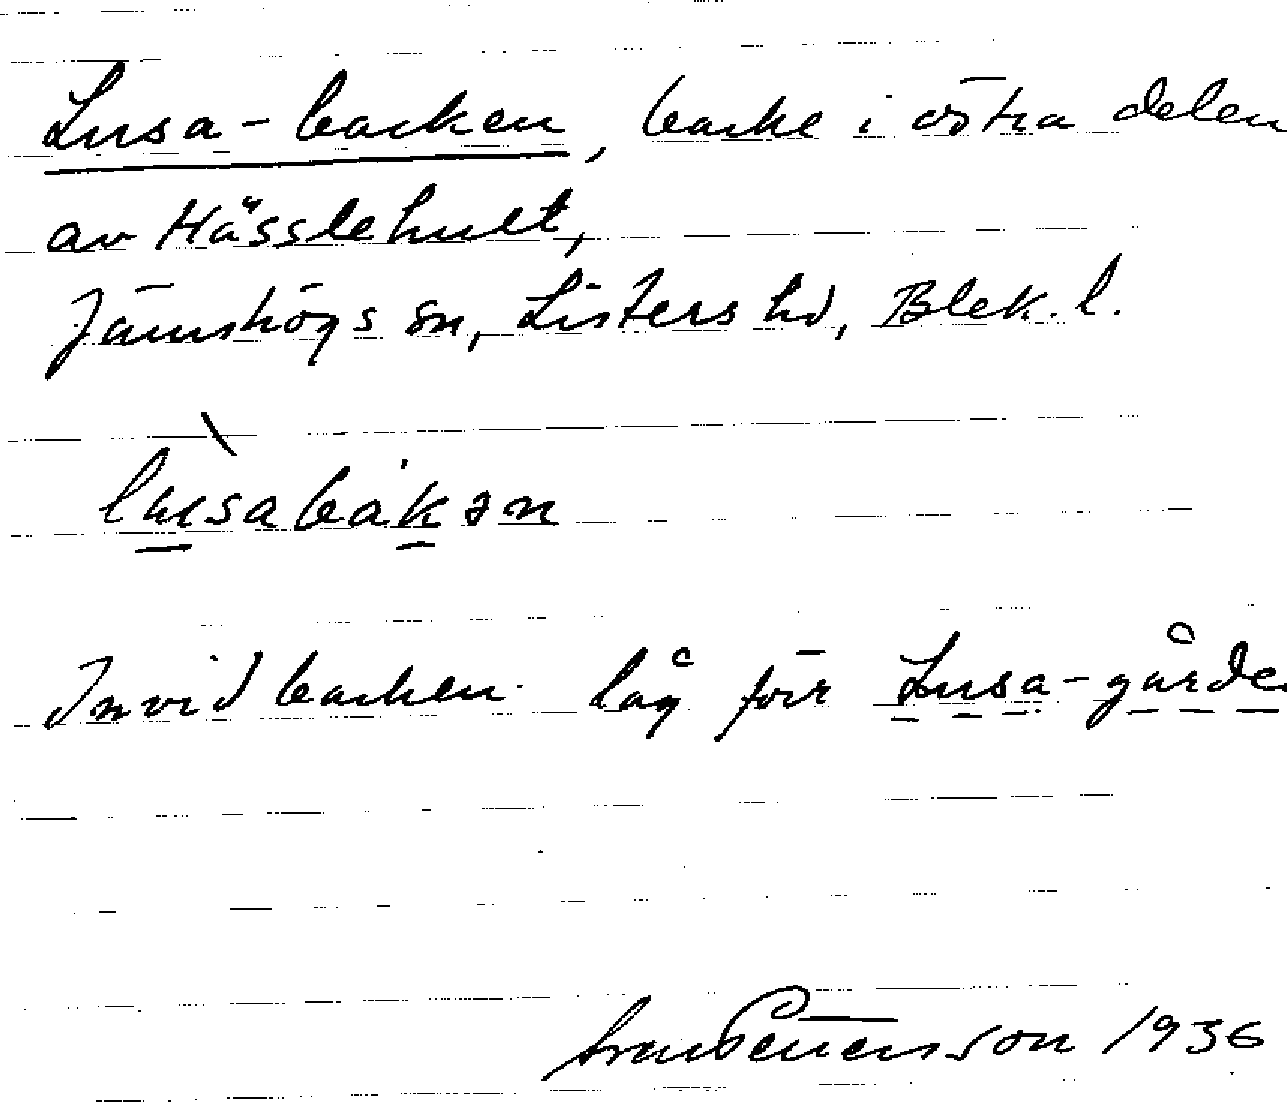 Lusa-backen, backe i östra delen
av Hässlehult,
Jämshögs sn, Listers hd, Blek. l.
lusabakən
Invid backen låg förr Lusa-gårde
Sven Benensson 1936